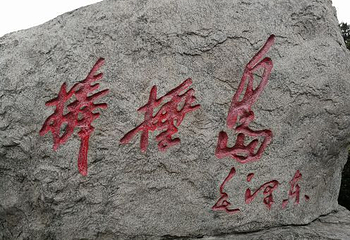 棒棰岛
毛泽东